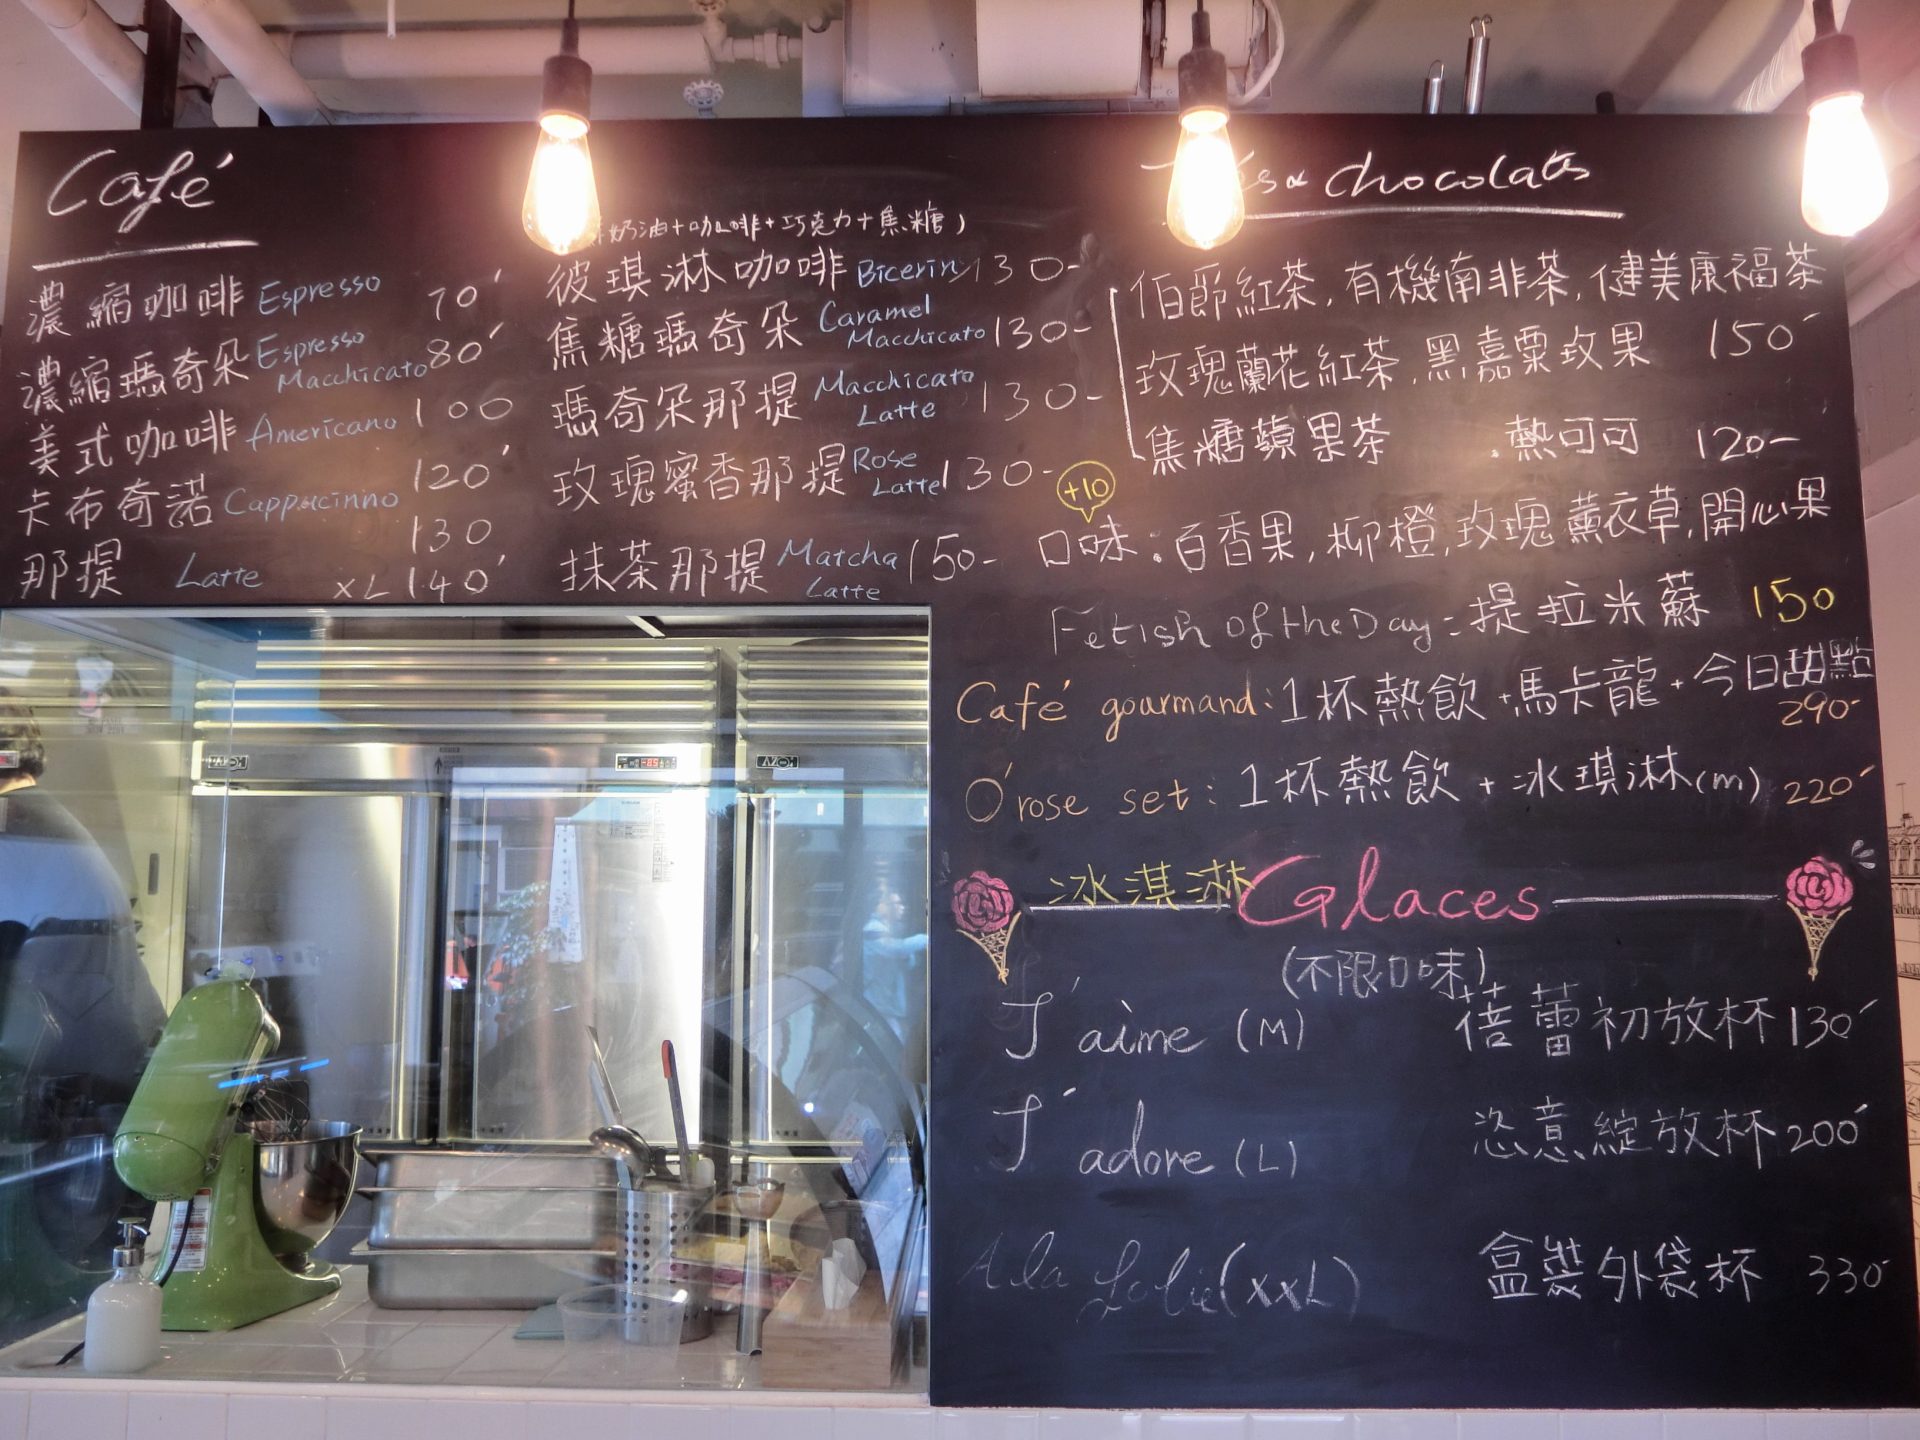 Café
濃縮咖啡 Espresso 70
濃縮瑪奇朵 Espresso Macchicato 80
美式咖啡 Americano 100
卡布奇諾 Cappucinno 120
130
那提 Latte XL 140
奶油+咖啡+巧克力+焦糖)
彼琪淋咖啡 Bicerin 130-
焦糖瑪奇朵 Caramel Macchicato 130-
瑪奇朵那提 Macchicato Latte 130-
玫瑰蜜香那提 Rose Latte 130-
抹茶那提 Matcha Latte 150-
chocolats
伯爵紅茶, 有機南非茶, 健美康福茶
玫瑰蘭花紅茶, 黑嘉栗玫果 150
焦糖蘋果茶 .熱可可 120-
+10
口味:百香果, 柳橙, 玫瑰, 薰衣草, 開心果
Fetish of the Day: 提拉米蘇 150
Café gourmand: 1杯熱飲+馬卡龍+今日甜點 290-
O'rose set: 1杯熱飲+冰琪淋(m) 220
冰淇淋 Glaces
(不限口味)
J'aime (M) 蓓蕾初放杯 130
J'adore (L) 恣意綻放杯 200
A la folie (XXL) 盒裝外袋杯 330